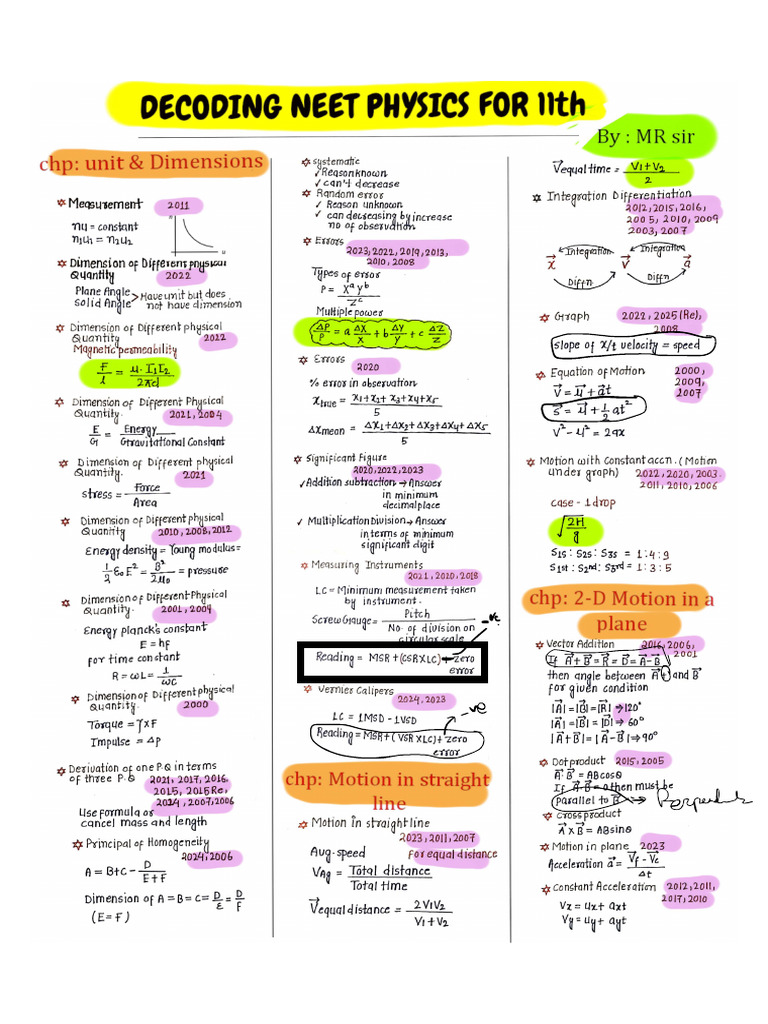 DECODING NEET PHYSICS FOR 11th
By : MR sir
chp: unit & Dimensions
Measurement 2011
nu = constant
n₁u₁ = n₂u₂
n
u
Dimension of Different physical
Quantity 2022
Plane Angle
solid Angle > Have unit but does
not have dimension
Dimension of Different physical
Quantity 2022
Magnetic permeability
F/l = μ. I₁I₂/2πd
Dimension of Different Physical
Quantity. 2021, 2004
E/G = Energy/Gravitational Constant
Dimension of Different physical
Quantity. 2021
stress = Force/Area
Dimension of Different physical
Quantity 2010, 2008, 2012
Energy density = Young modulus =
1/2 ε₀E² = B²/2μ₀ = pressure
Dimension of Different Physical
Quantity. 2001, 2004
Energy planck's constant
E = hf
for time constant
R = ωL = 1/ωC
Dimension of Different Physical
Quantity. 2000
Torque = r×F
Impulse = Δp
Derivation of one P.Q in terms
of three P.Q 2021, 2017, 2016
2015, 2015Re,
2024, 2007, 2006
Use formula or
cancel mass and length
Principal of Homogeneity
2024, 2006
A = B+C - D/E+F
Dimension of A = B = C = D/E = D/F
(E = F)
systematic
✓ Reason known
✓ can't decrease
Random error
✓ Reason unknown
✓ can decreasing by increase
no of observation
Errors
2023, 2022, 2019, 2013,
2010, 2008
Types of error
P = XᵃYᵇ/Zᶜ
Multiple power
ΔP/P = a ΔX/X + b ΔY/Y + c ΔZ/Z
Errors
2020
% error in observation
Xtrue = x₁+x₂+x₃+x₄+x₅/5
ΔXmean = Δx₁+Δx₂+Δx₃+Δx₄+Δx₅/5
Significant Figure
2020, 2022, 2023
✓ Addition subtraction → Answer
in minimum
decimal place
✓ Multiplication Division → Answer
in terms of minimum
significant digit
Measuring Instruments
2021, 2020, 2018
LC = Minimum measurement taken
by instrument.
Screw Gauge = Pitch/No. of division on
circular scale
-ve
Reading = MSR + (CSR×LC) + Zero
error
Vernier Calipers 2024, 2023
LC = 1MSD - 1VSD
-ve
Reading = MSR + (VSR×LC) + Zero
error
chp: Motion in straight
line
Motion in straight line
2023, 2011, 2007
Aug.speed for equal distance
VAg = Total distance/Total time
V⃗equal distance = 2V₁V₂/V₁+V₂
V⃗equal time = V₁+V₂/2
Integration Differentiation
2012, 2015, 2016,
2005, 2010, 2009
2003, 2007
Integration Integration
x⃗ v⃗ a⃗
Diffn Diffn
Graph 2022, 2025(Re),
2008
slope of x/t velocity = speed
Equation of Motion 2000,
2009,
2007
V⃗ = u⃗ + a⃗t
s⃗ = u⃗ + 1/2 at²
v² - u² = 2ax
Motion with Constant accn. (Motion
under graph) 2022, 2020, 2003.
2011, 2010, 2006
case - 1 drop
√2H/g
S₁s : S₂s : S₃s = 1 : 4 : 9
S₁st : S₂nd : S₃rd = 1 : 3 : 5
chp: 2-D Motion in a
plane
Vector Addition 2016, 2006,
2001
If A⃗ + B⃗ = R⃗ = D⃗ = A⃗ - B⃗
then angle between A⃗ + and B⃗
for given condition
|A⃗| = |B⃗| = |R⃗| → 120°
|A⃗| = |B⃗| = |D⃗| → 60°
|A⃗ + B⃗| = |A⃗ - B⃗| → 90°
Dot product 2015, 2005
A⃗.B⃗ = ABcosθ
If A⃗.B⃗ = 0 then must be
Parallel to B⃗
Cross product
A⃗ × B⃗ = ABsinθ
Motion in plane 2023
Acceleration a⃗ = V⃗f - V⃗c/Δt
Constant Acceleration 2012, 2011,
2017, 2010
Vx = ux + axt
Vy = uy + ayt